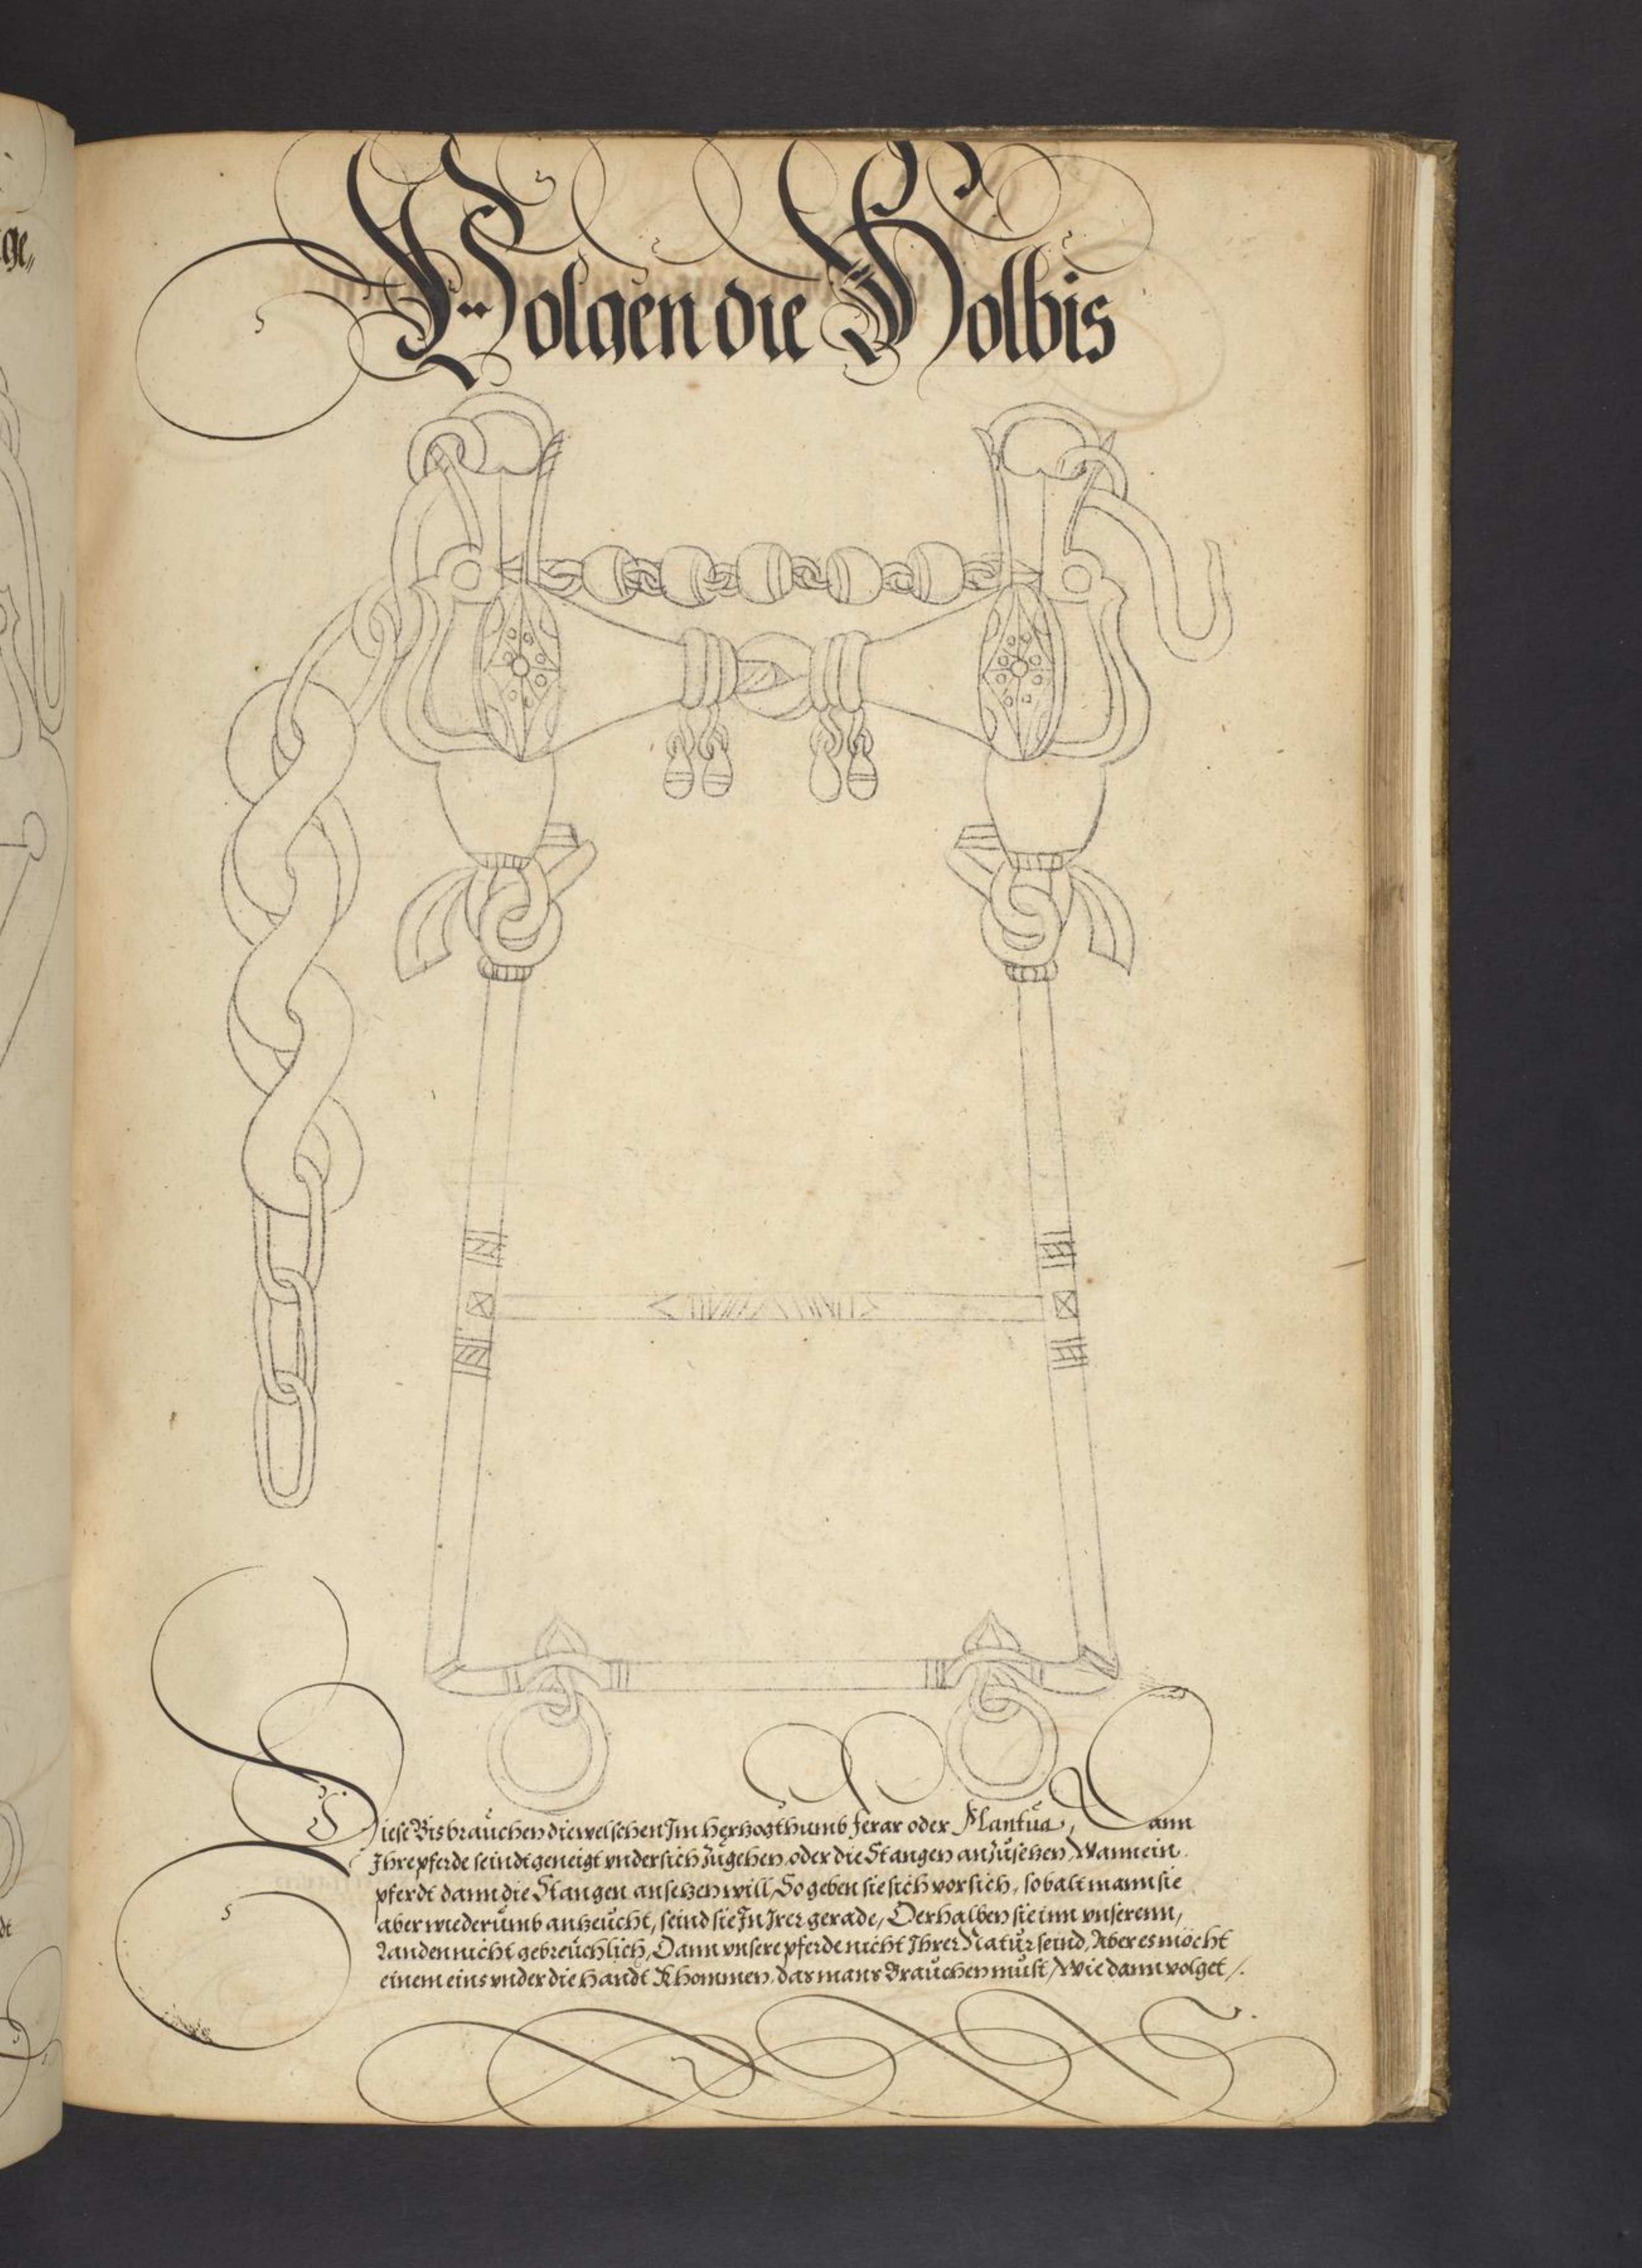 ge,,
Volgen die Holbis
Diese Bis braūchen die welschen Im hertzogthumb ferar oder Mantūa, Dann
Ihre pferde seindt geneigt vndersich zūgehen, oder die Stangen anzūsetzen, Wann ein
pferdt dann die Stangen ansetzen will, So geben sie sich vorsich, sobalt mann sie
aber wiederūmb antzeūcht, seind sie In Irer gerade, Derhalben sie inn vnserenn,
Landen nicht gebreūchlich, Dann vnsere pferde nicht Ihrer Natūr seind, Aber es möcht
einem eins vnder die handt Khommen, das mans Braūchen mūst, Wie dann volget /.
dt